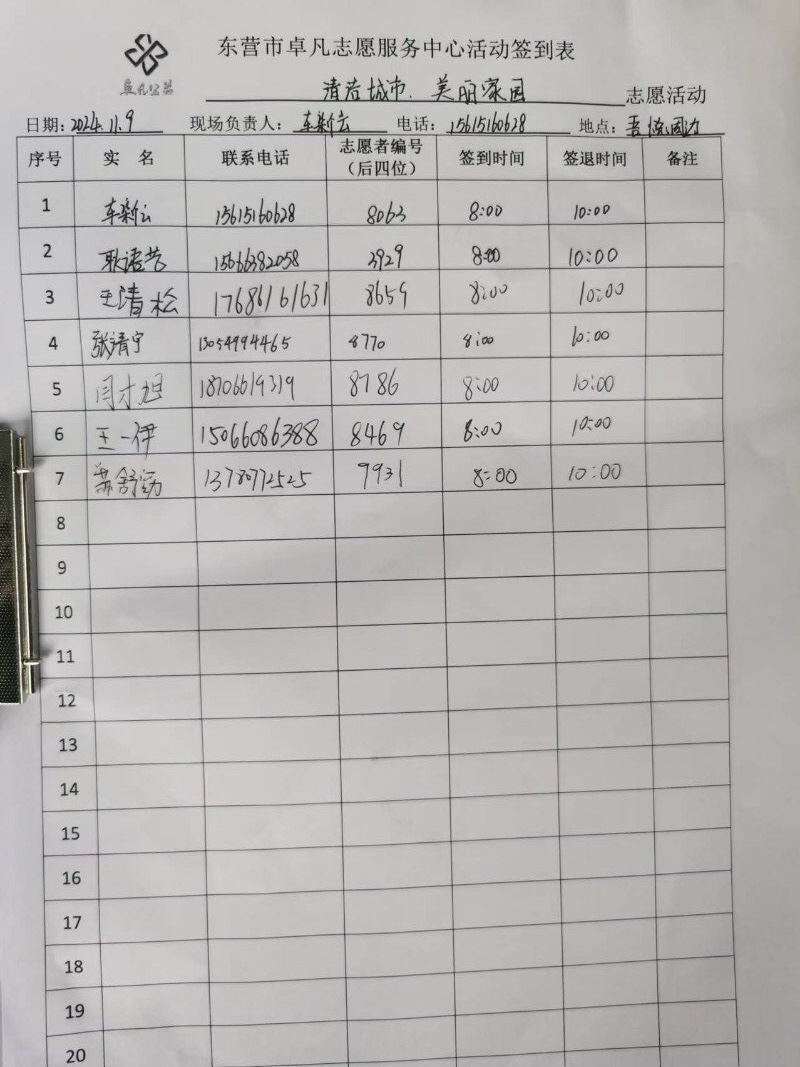 东营市卓凡志愿服务中心活动签到表
卓凡公益
清洁城市、美丽家园 志愿活动
日期：2024.11.9 现场负责人：车新云 电话：15615160628 地点：
序号 实 名 联系电话 志愿者编号（后四位） 签到时间 签退时间 备注
1 车新云 15615160628 8063 8:00 10:00
2 15666382058 2929 8:00 10:00
3 王清松 17686161631 8659 8:00 10:00
4 张靖宁 13054994465 8770 8:00 10:00
5 闫才旭 18706619319 8786 8:00 10:00
6 王一伊 15066086388 8469 8:00 10:00
7 13780772525 7931 8:00 10:00
8
9
10
11
12
13
14
15
16
17
18
19
20